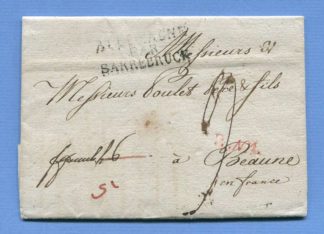 ALLEMAGNE
PAR
SARREBRUCK
Messieurs
Messieurs Poulet Père & fils
à Beaune
en france